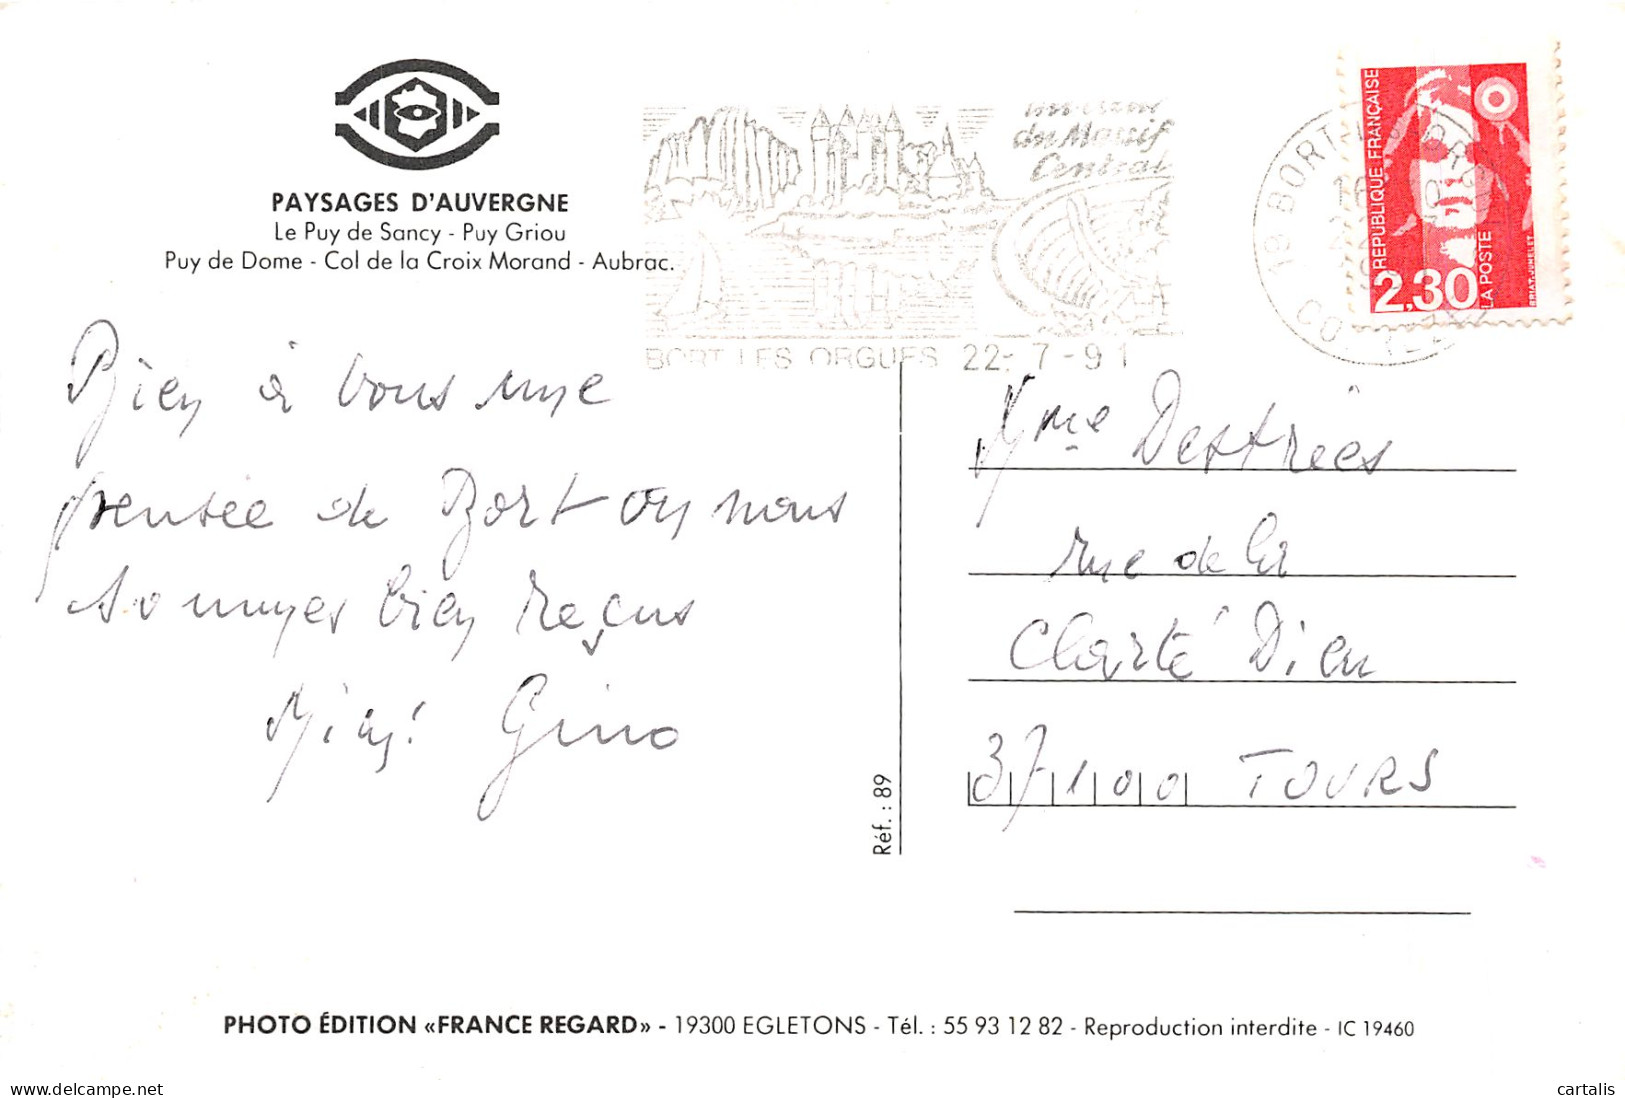 PAYSAGES D'AUVERGNE
Le Puy de Sancy - Puy Griou
Puy de Dome - Col de la Croix Morand - Aubrac.
du Massif
Central
BORT LES ORGUES 22-7-91
19 BORT
RÉPUBLIQUE FRANÇAISE
2,30
LA POSTE
BRIAT-JUMELET
Bien à vous une
pensée de Bort on nous
sommes bien reçus
Gino
Mme Destrées
rue de la
Clarté Dieu
37100 TOURS
Réf. : 89
PHOTO ÉDITION «FRANCE REGARD» - 19300 EGLETONS - Tél. : 55 93 12 82 - Reproduction interdite - IC 19460
delcampe.net
cartalis